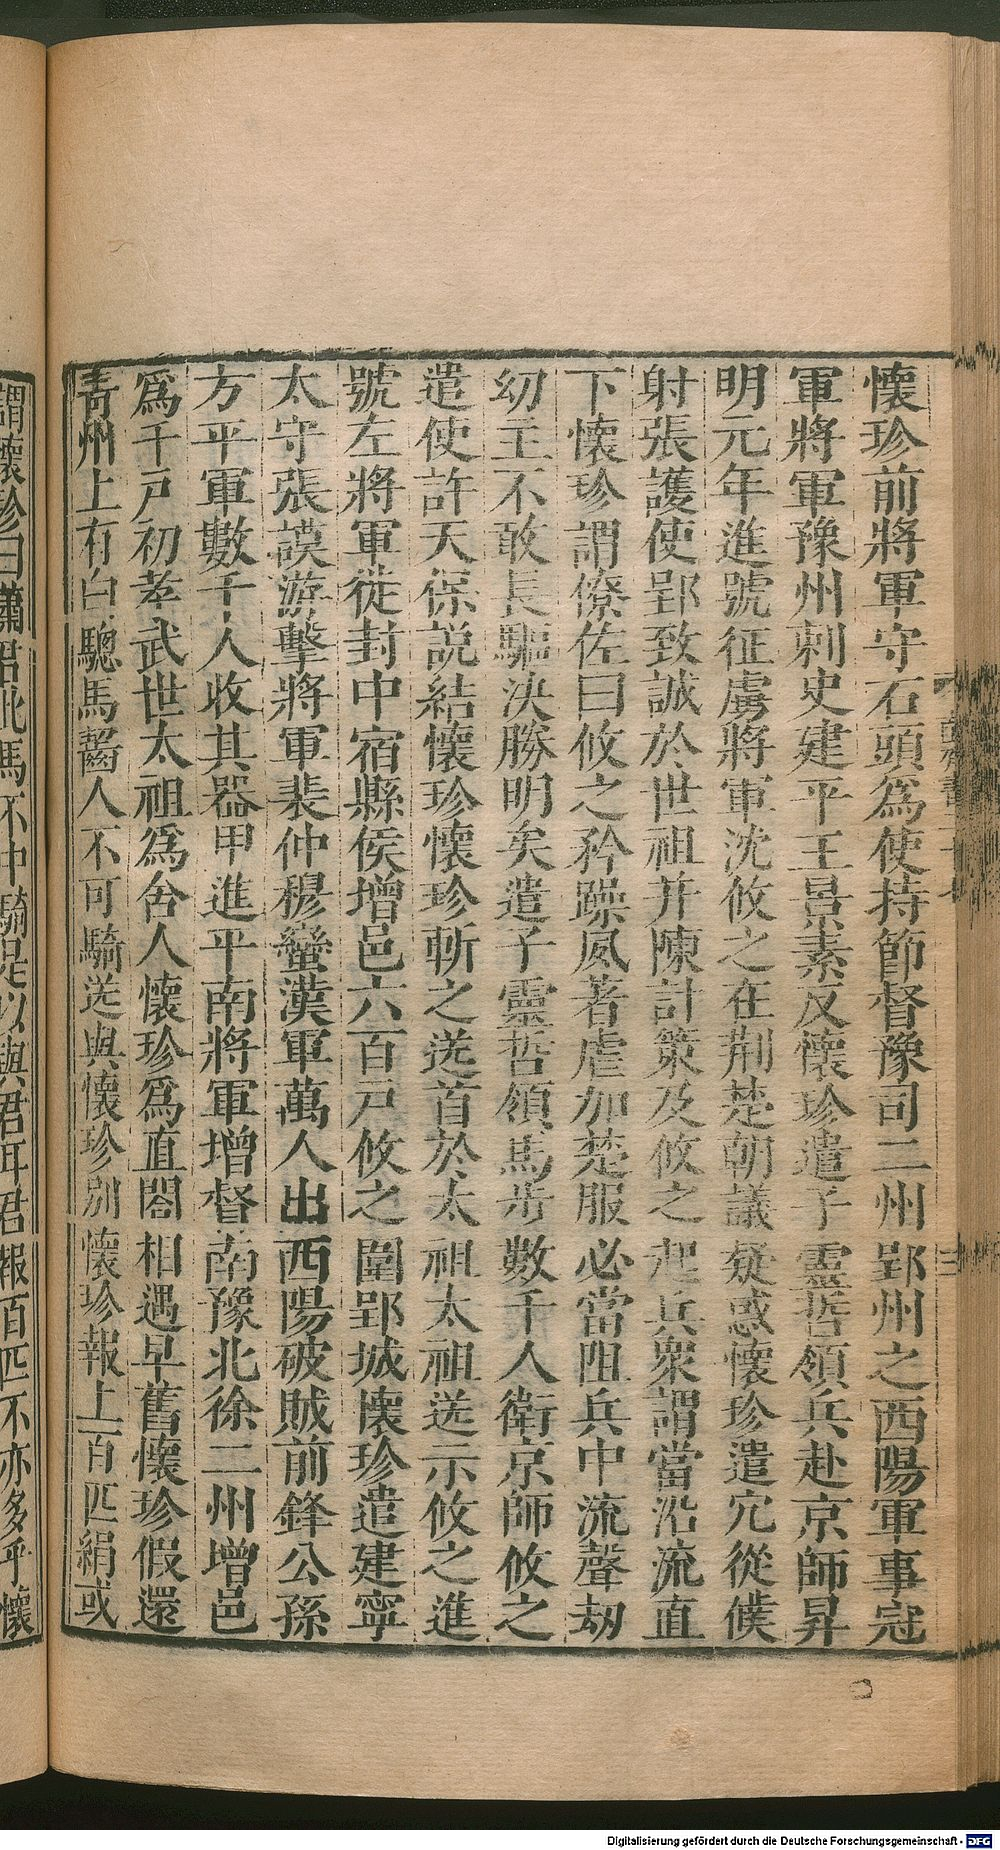 懷珍前將軍守石頭爲使持節督豫司二州郢州之西陽軍事冠
軍將軍豫州刺史建平王景素反懷珍遣子靈哲領兵赴京師昇
明元年進號征虜將軍沈攸之在荆楚朝議疑惑懷珍遣冗從僕
射張護使郢致誠於世祖并陳計策及攸之起兵衆謂當沿流直
下懷珍謂僚佐曰攸之矜躁夙著虐加楚服必當阻兵中流聲劫
幼主不敢長驅決勝明矣遣子靈哲領馬步數千人衛京師攸之
遣使許天保説結懷珍懷珍斬之送首於太祖太祖送示攸之進
號左將軍徙封中宿縣侯增邑六百户攸之圍郢城懷珍遣建寧
太守張謨游擊將軍裴仲穆蠻漢軍萬人出西陽破賊前鋒公孫
方平軍數千人收其器甲進平南將軍增督南豫北徐二州增邑
爲千户初孝武世太祖爲舍人懷珍爲直閤相遇早舊懷珍假還
青州上有白驄馬齧人不可騎送與懷珍別懷珍報上百匹絹或
謂懷珍曰蕭君此馬不中騎是以與君耳君報百匹不亦多乎懷
三
Digitalisierung gefördert durch die Deutsche Forschungsgemeinschaft - DFG